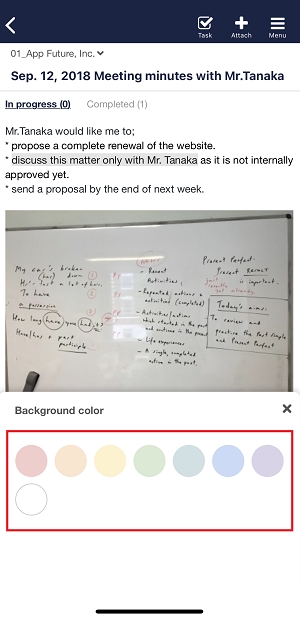 Task
Attach
Menu
01_App Future, Inc.
Sep. 12, 2018 Meeting minutes with Mr.Tanaka
In progress (0)
Completed (1)
Mr.Tanaka would like me to;
* propose a complete renewal of the website.
* discuss this matter only with Mr. Tanaka as it is not internally
approved yet.
* send a proposal by the end of next week.
My car's broken
(has) down
His lost a lot of hair.
To have
a possession
How long have you had
Have/has + past
participle
- Recent
Activities
- Repeated actions +
activities (completed)
- Activities/actions
which started in the past
and continue in the present
- Life experiences
- A single, completed
action in the past.
Present Perfect.
Present Result
is important.
Today's aims:
To review and
practice the Past simple
and Present Perfect
Background color